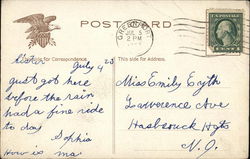 POST CARD
JUL 5
2 PM
Space for Correspondence
This side for Address.
July 4
just got here
before the rain
had a fine ride
to day
Sophia
How is ma
Miss Emily Egth
Lawrence Ave
Hasbrouck Hgts
N.J.